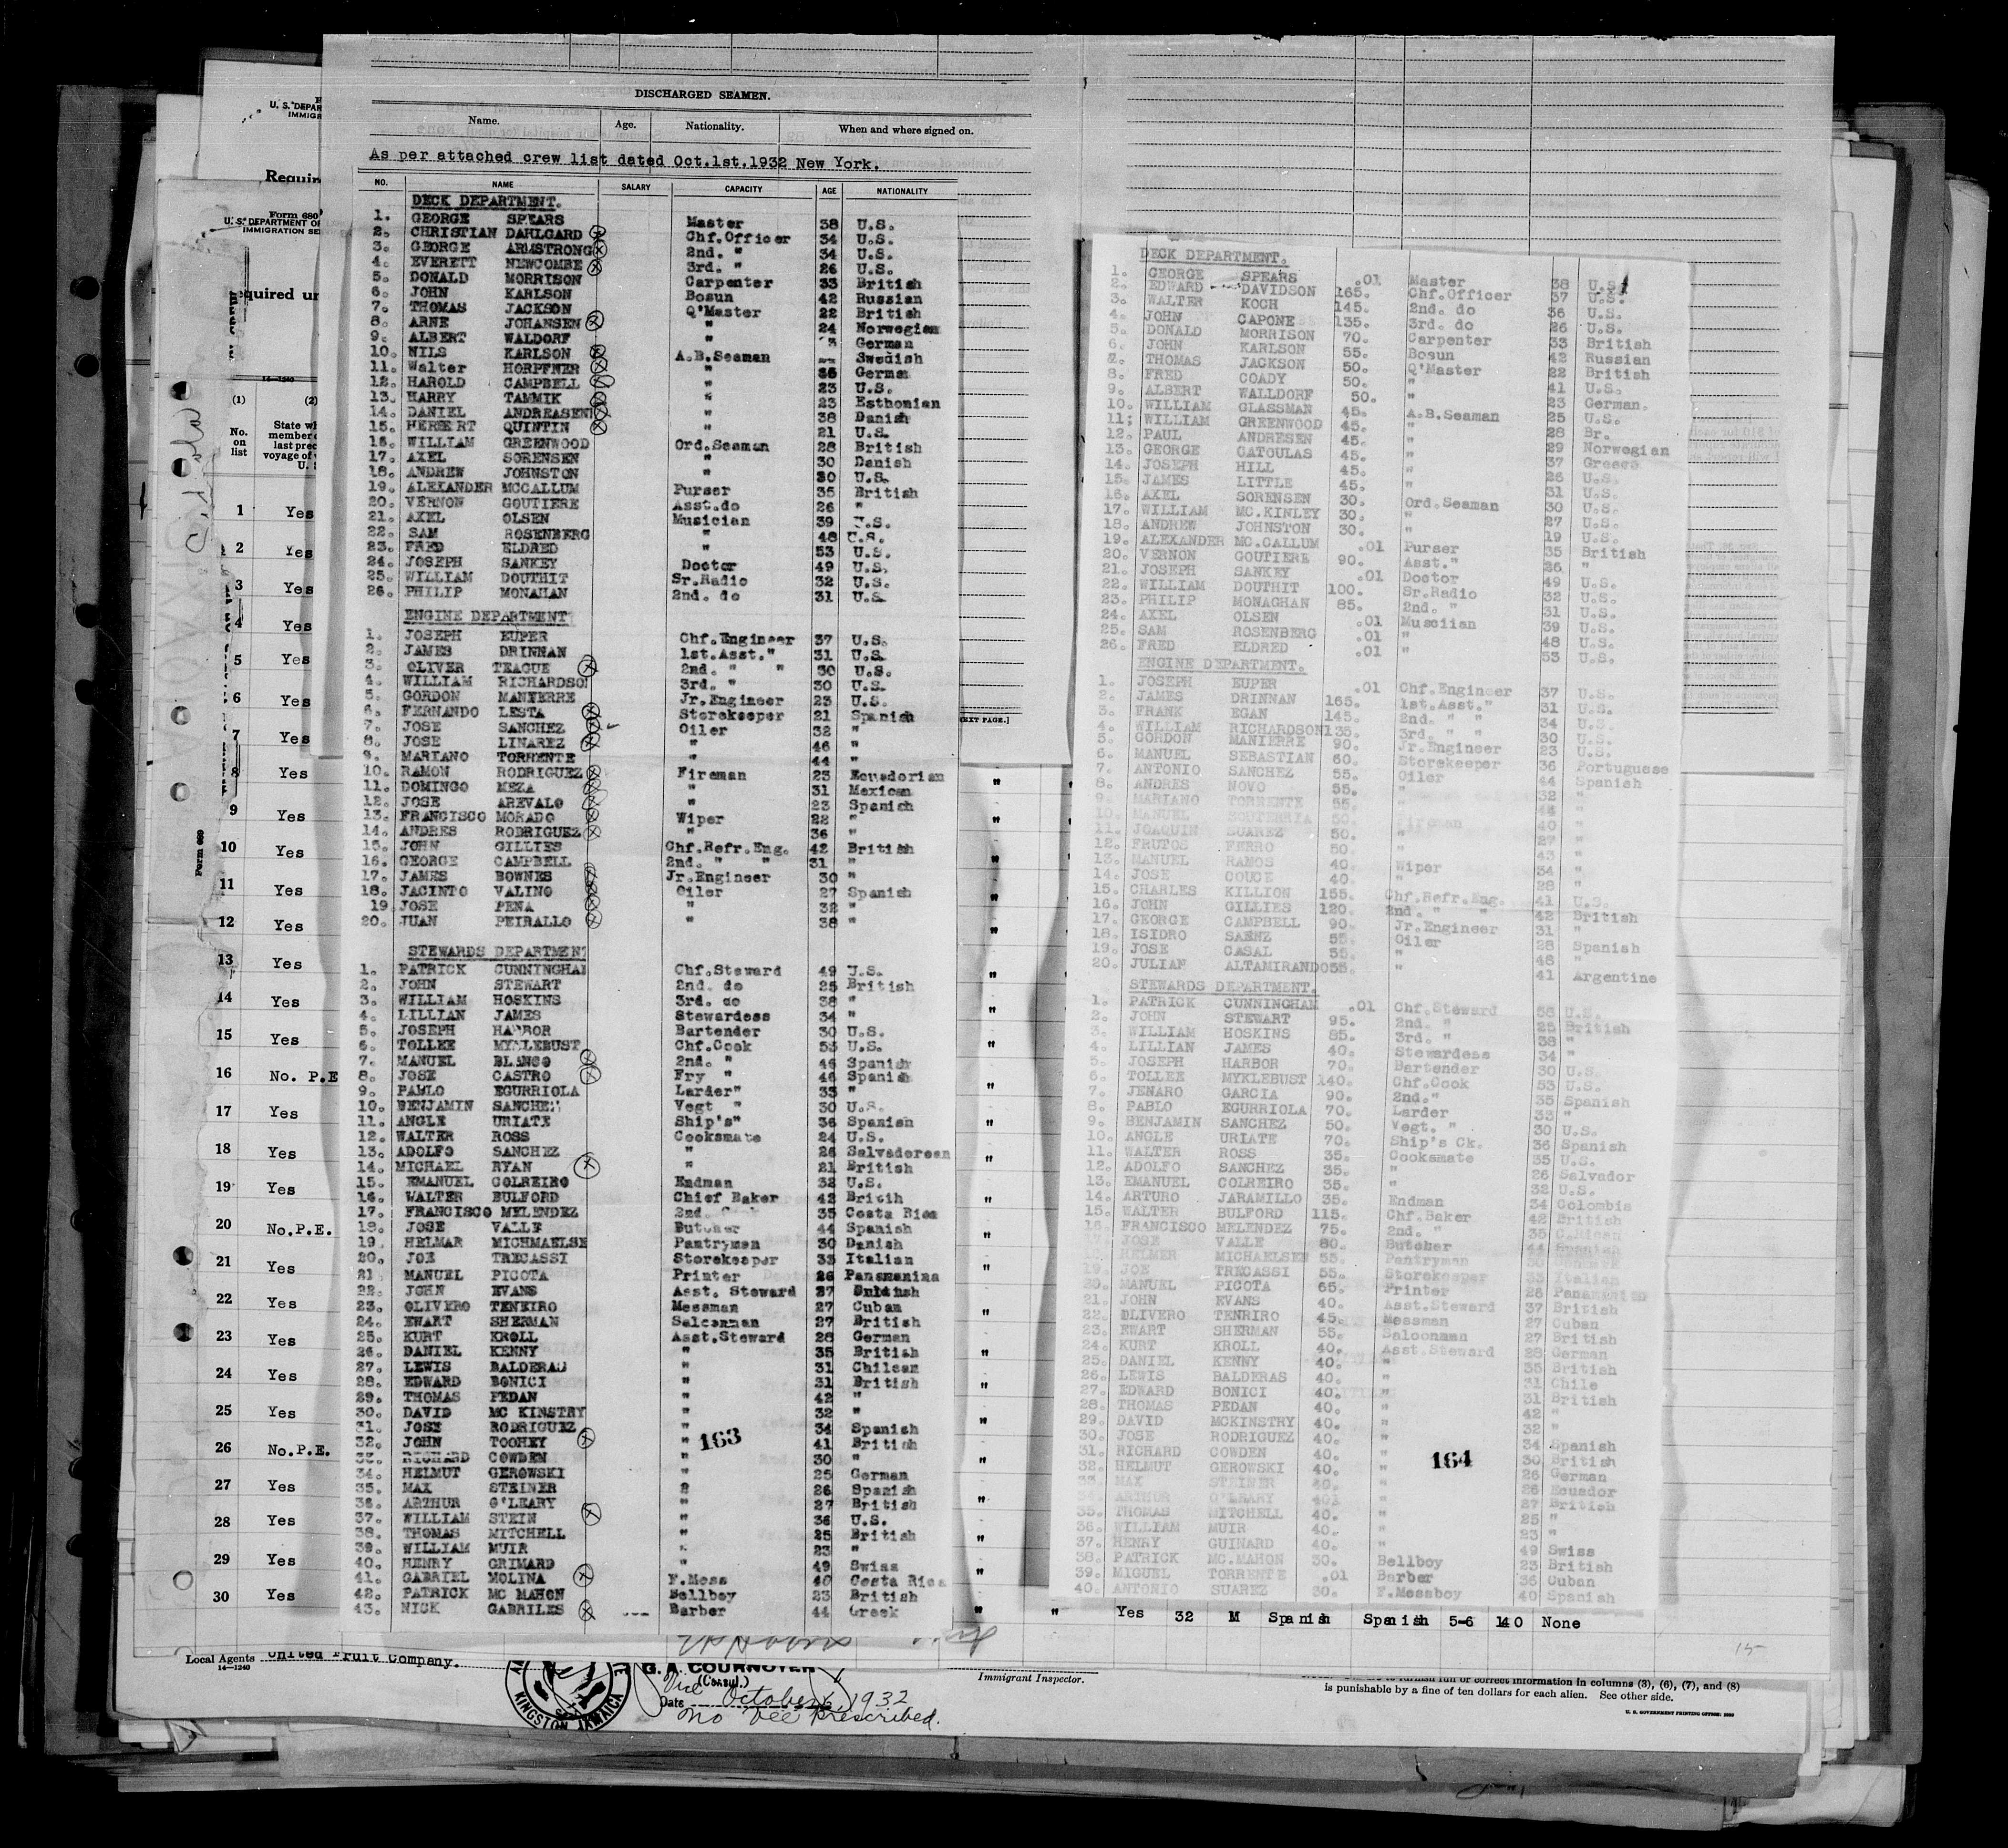 DISCHARGED SEAMEN.
Name. Age. Nationality. When and where signed on.
As per attached crew list dated Oct.1st.1932 New York.
NO. NAME SALARY CAPACITY AGE NATIONALITY
DECK DEPARTMENT.
1. GEORGE SPEARS Master 38 U.S.
2. CHRISTIAN DAHLGARD Chf.Officer 34 U.S.
3. GEORGE ARMSTRONG 2nd. " 34 U.S.
4. EVERETT NEWCOMBE 3rd. " 26 U.S.
5. DONALD MORRISON Carpenter 33 British
6. JOHN KARLSON Bosun 42 Russian
7. THOMAS JACKSON Q'Master 22 British
8. ARNE JOHANSEN " 24 Norwegian
9. ALBERT WALDORF " 3 German
10. NILS KARLSON A.B.Seaman Swedish
11. Walter HORPFNER " 35 Germa
12. HAROLD CAMPBELL " 23 U.S.
13. HARRY TAMMIK " 23 Esthonian
14. DANIEL ANDREASEN " 38 Danish
15. HERBERT QUINTIN " 21 U.S.
16. WILLIAM GREENWOOD Ord.Seaman 28 British
17. AXEL SORENSEN " 30 Danish
18. ANDREW JOHNSTON " 30 U.S.
19. ALEXANDER MCCALLUM Purser 35 British
20. VERNON GOUTIERE Asst.do 26 "
21. AXEL OLSEN Musician 39 U.S.
22. SAM ROSENBERG " 48 U.S.
23. FRED ELDRED " 53 U.S.
24. JOSEPH SANKEY Doctor 49 U.S.
25. WILLIAM DOUTHIT Sr.Radio 32 U.S.
26. PHILIP MONAHAN 2nd. do 31 U.S.
ENGINE DEPARTMENT
1. JOSEPH EUPER Chf.Engineer 37 U.S.
2. JAMES DRINNAN 1st.Asst." 31 U.S.
3. OLIVER TEAGUE 2nd. " " 30 U.S.
4. WILLIAM RICHARDSON 3rd. " 30 U.S.
5. GORDON MANIERRE Jr.Engineer 23 U.S.
6. FERNANDO LESTA Storekeeper 21 Spanish
7. JOSE SANCHEZ Oiler 32 "
8. JOSE LINAREZ " 46 "
9. MARIANO TORRENTE " 44 "
10. RAMON RODRIGUEZ Fireman 23 Ecuadorian
11. DOMINGO MEZA " 31 Mexican
12. JOSE AREVALO " 23 Spanish
13. FRANCISCO MORADO Wiper 22 "
14. ANDRES RODRIGUEZ " 36 "
15. JOHN GILLIES Chf.Refr.Eng. 42 British
16. GEORGE CAMPBELL 2nd. " " 31 "
17. JAMES BOWNES Jr.Engineer 30 "
18. JACINTO VALINO Oiler 27 Spanish
19 JOSE PENA " 32 "
20. JUAN PEIRALLO " 38 "
STEWARDS DEPARTMENT
1. PATRICK CUNNINGHAM Chf.Steward 49 U.S.
2. JOHN STEWART 2nd. do 25 British
3. WILLIAM HOSKINS 3rd. do 38 "
4. LILLIAN JAMES Stewardess 34 "
5. JOSEPH HARBOR Bartender 30 U.S.
6. TOLLEE MYKLEBUST Chf.Cook 53 U.S.
7. MANUEL BLANCO 2nd. " 46 Spanish
8. JOSE CASTRO Fry " 46 Spanish
9. PABLO EGURRIOLA Larder" 33 "
10. BENJAMIN SANCHEZ Vegt " 30 U.S.
11. ANGLE URIATE Ship's" 36 Spanish
12. WALTER ROSS Cooksmate 24 U.S.
13. ADOLFO SANCHEZ " 26 Salvadorean
14. MICHAEL RYAN " 21 British
15. EMANUEL COLREIRO Endman 32 U.S.
16. WALTER BULFORD Chief Baker 42 Britih
17. FRANCISCO MELENDEZ 2nd. 35 Costa Rica
18. JOSE VALLE Butcher 44 Spanish
19. HELMAR MICHMAELSE Pantryman 30 Danish
20. JOE TRECASSI Storekeeper 33 Italian
21 MANUEL PICOTA Printer 26 Panamanina
22. JOHN EVANS Asst. Steward 37 British
23. OLIVERO TENEIRO Messman 27 Cuban
24. EWART SHERMAN Saloonman 27 British
25. KURT KROLL Asst.Steward 28 German
26. DANIEL KENNY " 35 British
27. LEWIS BALDERAS " 31 Chilean
28. EDWARD BONICI " 31 British
29. THOMAS PEDAN " 42 "
30. DAVID MC KINSTRY " 32 "
31. JOSE RODRIGUEZ " 34 Spanish
32. JOHN TOOHEY " 41 British
33. RICHARD COWDEN " 30 "
34. HELMUT GEROWSKI " 25 German
35. MAX STEINER " 26 Spanish
36. ARTHUR O'LEARY " 27 British
37. WILLIAM STEIN " 36 U.S.
38. THOMAS MITCHELL " 25 British
39. WILLIAM MUIR " 23 "
40. HENRY GRIMARD " 49 Swiss
41. GABRIEL MOLINA F.Mess 40 Costa Rica
42. PATRICK MC MAHON Bellboy 23 British
43. NICK GABRILES Barber 44 Greek
163
DECK DEPARTMENT.
1. GEORGE SPEARS .01 Master 38 U.S.
2. EDWARD DAVIDSON 165. Chf.Officer 37 U.S.
3. WALTER KOCH 145. 2nd. do 36 U.S.
4. JOHN CAPONE 135. 3rd. do 26 U.S.
5. DONALD MORRISON 70. Carpenter 33 British
6. JOHN KARLSON 55. Bosun 42 Russian
7. THOMAS JACKSON 50. Q'Master 22 British
8. FRED COADY 50. " 41 U.S.
9. ALBERT WALLDORF 50. " 23 German.
10. WILLIAM GLASSMAN 45. A.B.Seaman 25 U.S.
11; WILLIAM GREENWOOD 45. " 28 Br.
12. PAUL ANDRESEN 45. " 29 Norwegian
13. GEORGE CATOULAS 45. " 37 Greece
14. JOSEPH HILL 45. " 26 U.S.
15. JAMES LITTLE 45. " 31 U.S.
16. AXEL SORENSEN 30. Ord.Seaman 30 U.S.
17. WILLIAM MC.KINLEY 30. " 27 U.S.
18. ANDREW JOHNSTON 30. " 19 U.S.
19. ALEXANDER MC.CALLUM .01 Purser 35 British
20. VERNON GOUTIERE 90. Asst." 26 "
21. JOSEPH SANKEY .01 Doctor 49 U.S.
22. WILLIAM DOUTHIT 100. Sr.Radio 32 U.S.
23. PHILIP MONAGHAN 85. 2nd. " 31 U.S.
24. AXEL OLSEN .01 Musciian 39 U.S.
25. SAM ROSENBERG .01 " 48 U.S.
26. FRED ELDRED .01 " 53 U.S.
ENGINE DEPARTMENT.
1. JOSEPH EUPER .01 Chf.Engineer 37 U.S.
2. JAMES DRINNAN 165. 1st.Asst." 31 U.S.
3. FRANK EGAN 145. 2nd. " " 34 U.S.
4. WILLIAM RICHARDSON 135. 3rd. " " 30 U.S.
5. GORDON MANIERRE 90. Jr.Engineer 23 U.S.
6. MANUEL SEBASTIAN 60. Storekeeper 36 Portuguese
7. ANTONIO SANCHEZ 55. Oiler 44 Spanish
8. ANDRES NOVO 55. " 32 "
9. MARIANO TORRENTE 55. " 44 "
10. MANUEL 50. Fireman 40 "
11. JOAQUIN SUAREZ 50. " 27 "
12. FRUTOS FERRO 50. " 43 "
13. MANUEL RAMOS 40. Wiper 34 "
14. JOSE COUCE 40. " 28 "
15. CHARLES KILLION 155. Chf.Refr.Eng. 41 U.S.
16. JOHN GILLIES 120. 2nd. " " 42 British
17. GEORGE CAMPBELL 90. Jr.Engineer 31 "
18. ISIDRO SAENZ 55. Oiler 28 Spanish
19. JOSE CASAL 55. " 46 "
20. JULIAN ALTAMIRANDO 55. " 41 Argentine
STEWARDS DEPARTMENT.
1. PATRICK CUNNINGHAM .01 Chf.Steward 56 U.S.
2. JOHN STEWART 95. 2nd. " 25 British
3. WILLIAM HOSKINS 85. 3rd. " 38 "
4. LILLIAN JAMES 40. Stewardess 34 "
5. JOSEPH HARBOR 70. Bartender 30 U.S.
6. TOLLEE MYKLEBUST 140. Chf.Cook 53 U.S.
7. JENARO GARCIA 90. 2nd." 35 Spanish
8. PABLO EGURRIOLA 70. Larder 33 "
9. BENJAMIN SANCHEZ 50. Vegt. " 30 U.S.
10. ANGLE URIATE 70. Ship's Ck. 36 Spanish
11. WALTER ROSS 35. Cooksmate 35 U.S.
12. ADOLFO SANCHEZ 35. " 26 Salvador
13. EMANUEL COLREIRO 35. " 32 U.S.
14. ARTURO JARAMILLO 35. Endman 34 Colombia
15. WALTER BULFORD 115. Chf.Baker 42 British
16. FRANCISCO MELENDEZ 75. 2nd. " 35 C.Rican
JOSE VALLE 80. Butcher 44 Spanish
HELMER MICHAELSEN 55. Pantryman 30
19. JOE TRECASSI 55. Storekeeper 33 Italian
20. MANUEL PICOTA 65. Printer 26
21. JOHN EVANS 40. Asst.Steward 37 British
22. OLIVERO TENRIRO 45. Messman 27 Cuban
23. EWART SHERMAN 55. Saloonman 27 British
24. KURT KROLL 40. Asst.Steward 28 German
25. DANIEL KENNY 40. " 35 British
26. LEWIS BALDERAS 40. " 31 Chile
27. EDWARD BONICI 40. " 31 British
28. THOMAS PEDAN 40. " 42 "
29. DAVID MCKINSTRY 40. " 32 "
30. JOSE RODRIGUEZ 40. " 34 Spanish
31. RICHARD COWDEN 40. " 30 British
32. HELMUT GEROWSKI 40. " 26 German
33. MAX STEINER 40. " 26 Ecuador
34. ARTHUR O'LEARY 40. " 27 British
35. THOMAS MITCHELL 40. " 25 "
36. WILLIAM MUIR 40. " 23 "
37. HENRY GUINARD 40. " 49 Swiss
38. PATRICK MC.MAHON 30. Bellboy 23 British
39. MIGUEL TORRENTE .01 Barber 36 Cuban
40. ANTONIO SUAREZ 30. F.Messboy 40 Spanish
164
U. S. DEPAR
IMMIGR
Requir
Form 680
U. S. DEPARTMENT OF
IMMIGRATION SE
equired un
14—1240
(1) (2)
No. on list
State wh
member o
last prec
voyage of
U.
1 Yes
2 Yes
3 Yes
4 Yes
5 Yes
6 Yes
7 Yes
8 Yes
9 Yes
10 Yes
11 Yes
12 Yes
13 Yes
14 Yes
15 Yes
16 No. P.E
17 Yes
18 Yes
19 Yes
20 No.P.E.
21 Yes
22 Yes
23 Yes
24 Yes
25 Yes
26 No.P.E.
27 Yes
28 Yes
29 Yes
30 Yes
Form 680
EXT PAGE.]
" " Yes 32 M Spanish Spanish 5-6 140 None
15
Local Agents United Fruit Company.
14—1240
KINGSTON JAMAICA
G. A. COURNOYER
(Consul.)
Vice
Date October 6, 1932
No fee Prescribed.
Immigrant Inspector.
full or correct information in columns (3), (6), (7), and (8)
is punishable by a fine of ten dollars for each alien. See other side.
U. S. GOVERNMENT PRINTING OFFICE: 1930